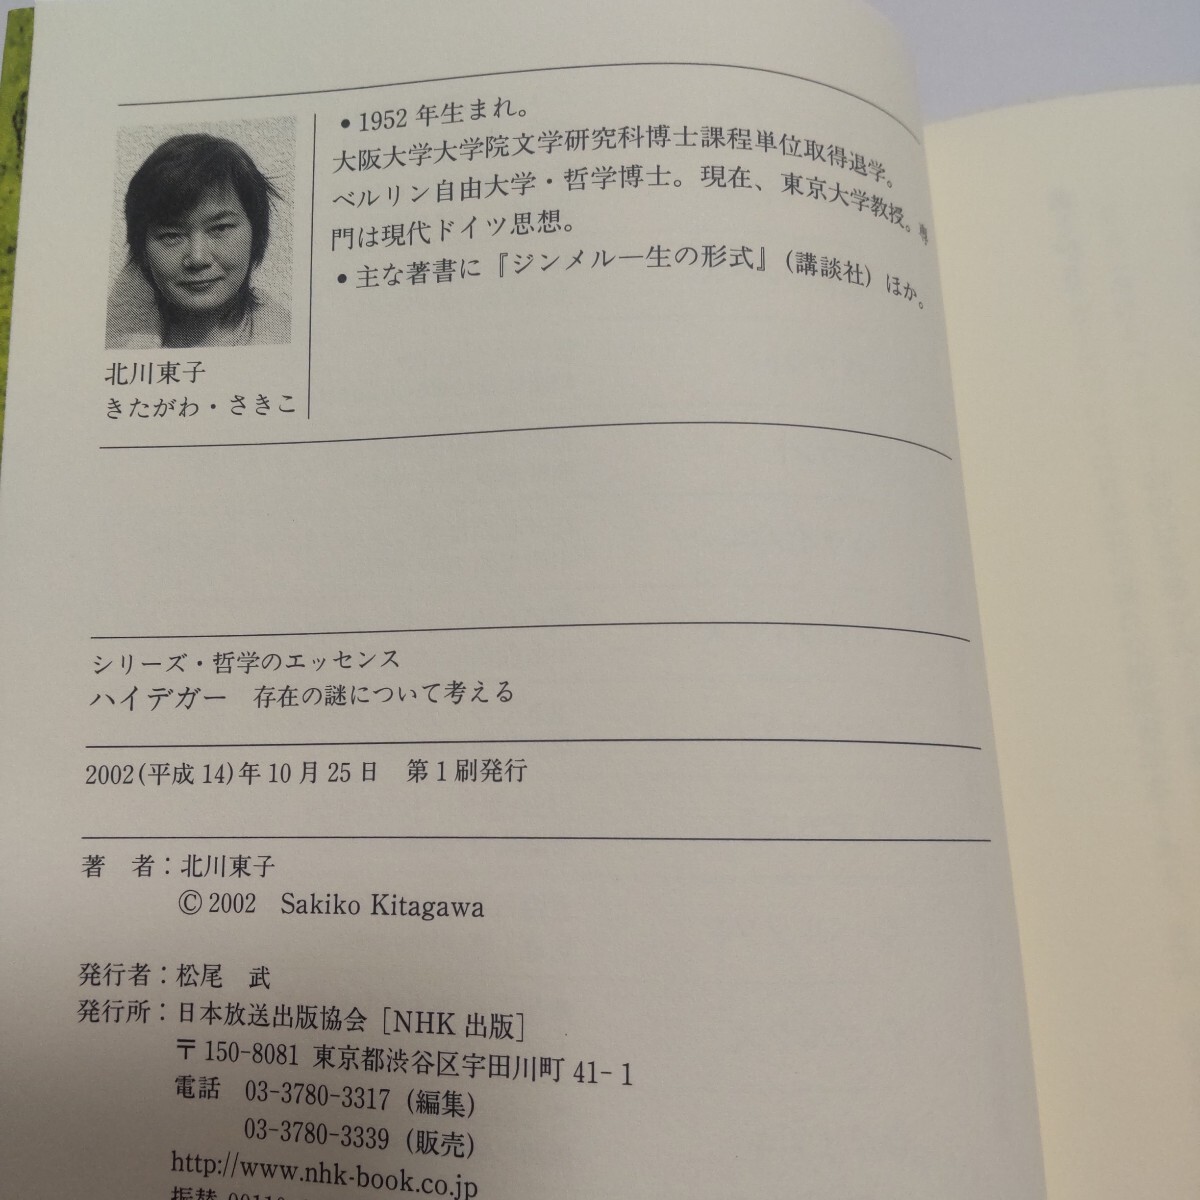 • 1952 年生まれ。
大阪大学大学院文学研究科博士課程単位取得退学。
ベルリン自由大学・哲学博士。現在、東京大学教授。専
門は現代ドイツ思想。
• 主な著書に『ジンメル―生の形式』(講談社) ほか。
北川東子
きたがわ・さきこ
シリーズ・哲学のエッセンス
ハイデガー　存在の謎について考える
2002(平成 14)年 10 月 25 日　第 1 刷発行
著　者：北川東子
© 2002　Sakiko Kitagawa
発行者：松尾　武
発行所：日本放送出版協会［NHK 出版］
〒150-8081 東京都渋谷区宇田川町 41-1
電話　03-3780-3317 (編集)
03-3780-3339 (販売)
http://www.nhk-book.co.jp
振替 00110